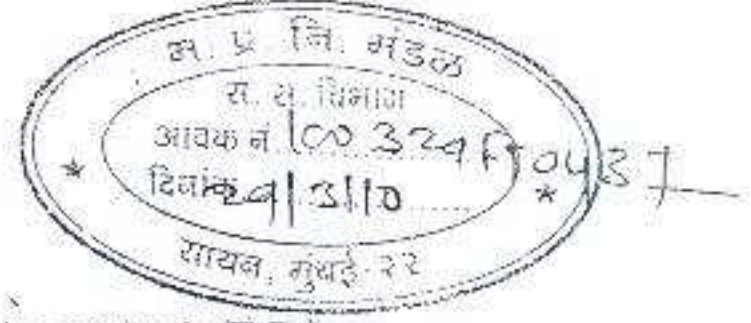 म. प्र. नि. मंडळ
स. स. विभाग
आवक नं. 100329FT0437
दिनांक 29/3/10
सायन, मुंबई-२२